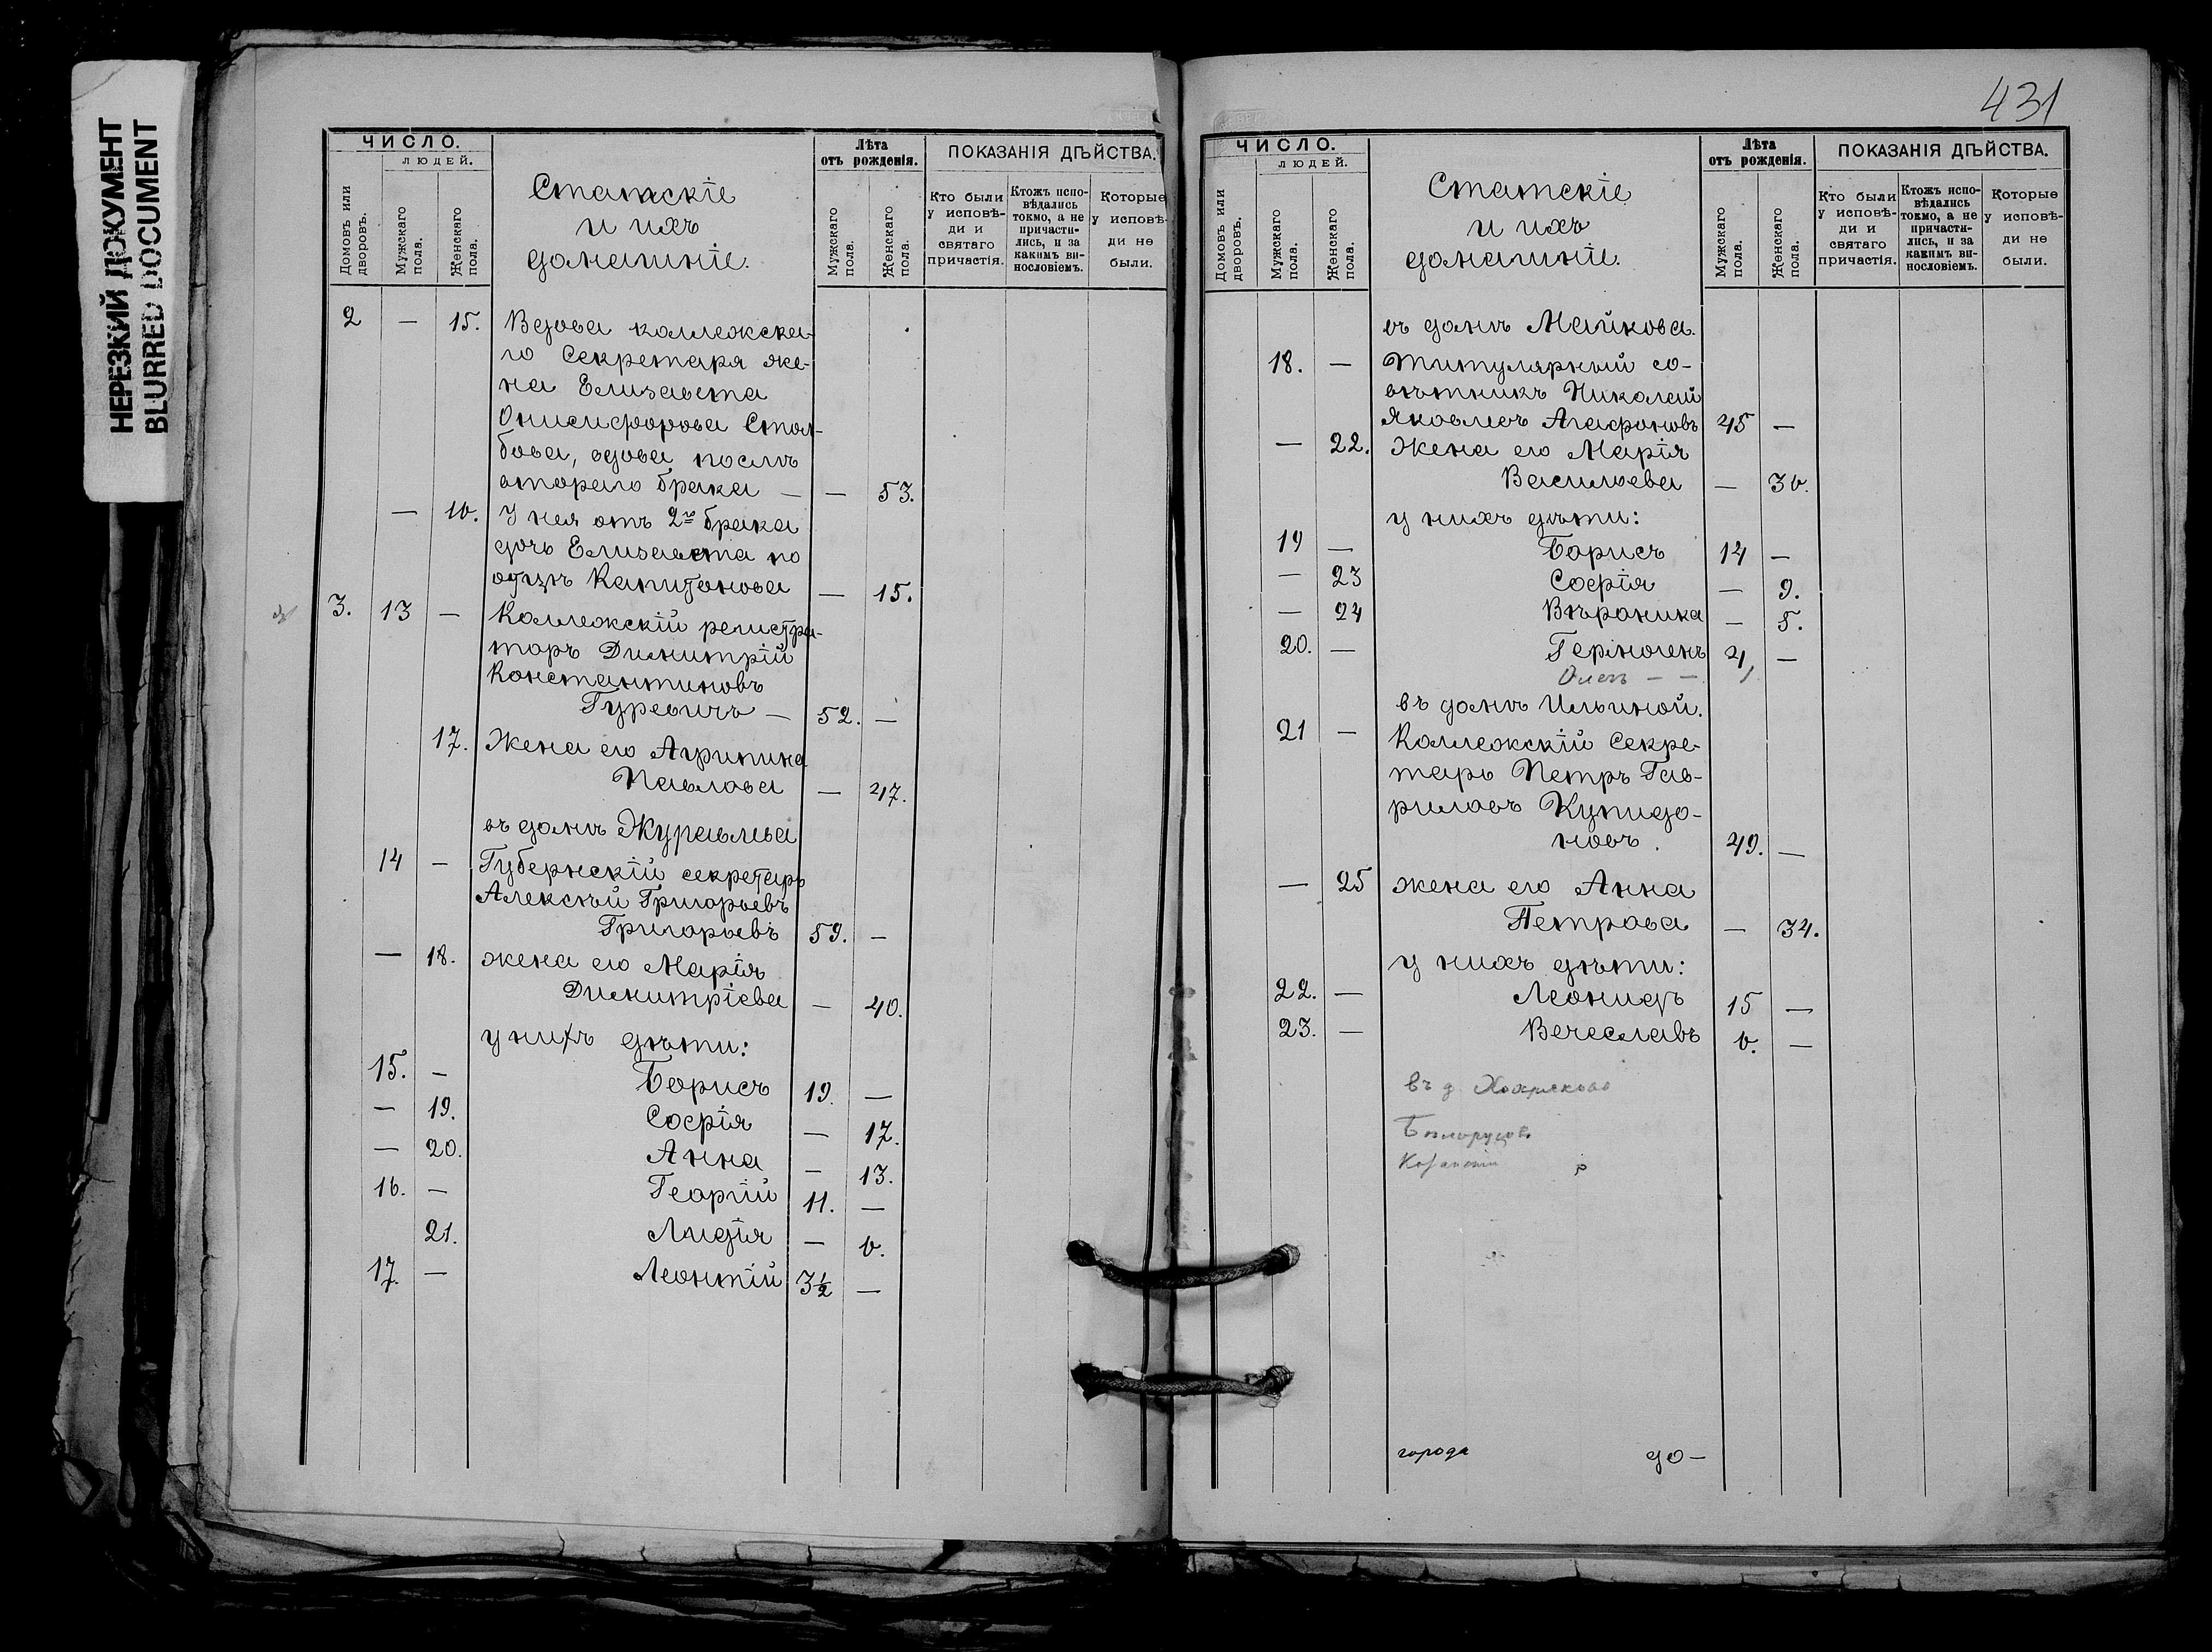 НЕРЕЗКИЙ ДОКУМЕНТ
BLURRED DOCUMENT
ЧИСЛО.
ЛЮДЕЙ.
Домовъ или дворовъ.
Мужскаго пола.
Женскаго пола.
Статскіе
и ихъ
домашніе.
Лѣта
отъ рожденія.
Мужскаго пола.
Женскаго пола.
ПОКАЗАНІЯ ДѢЙСТВА.
Кто были у исповѣди и святаго причастія.
Ктожъ исповѣдались токмо, а не причастились, и за какимъ винословіемъ.
Которые у исповѣди не были.
2 — 15. Вдова коллежска-
го Секретаря же-
на Елизавета
Онисифорова Стол-
бова, вдова послѣ
втораго брака — — 53.
— 16. У нея отъ 2го брака
дочь Елизавета по
отцѣ Капитонова — 15.
3. 13 — Коллежскій регистра-
торъ Димитрій
Константиновъ
Гуревичъ — 52. —
17. Жена его Агрипина
Павлова — 47.
въ домѣ Журавлева
14 — Губернскій секретарь
Алексѣй Григорьевъ
Григорьевъ 59. —
— 18. жена его Марія
Димитріева — 40.
у нихъ дѣти:
15. — Борисъ 19. —
— 19. Софія — 17.
— 20. Анна — 13.
16. — Георгій 11. —
21. Лидія — 6.
17. — Леонтій 3½ —
431
ЧИСЛО.
ЛЮДЕЙ.
Домовъ или дворовъ.
Мужскаго пола.
Женскаго пола.
Статскіе
и ихъ
домашніе.
Лѣта
отъ рожденія.
Мужскаго пола.
Женскаго пола.
ПОКАЗАНІЯ ДѢЙСТВА.
Кто были у исповѣди и святаго причастія.
Ктожъ исповѣдались токмо, а не причастились, и за какимъ винословіемъ.
Которые у исповѣди не были.
въ домѣ Майкова.
18. — Титулярный со-
вѣтникъ Николай
Яковлевъ Агафоновъ 45 —
— 22. Жена его Марія
Васильева — 36.
у нихъ дѣти:
19 — Борисъ 14 —
— 23 Софія — 9.
— 24 Вѣроника — 5.
20. — Гермогенъ 4 —
въ домѣ Ильиной.
21 — Коллежскій Секре-
тарь Петръ Гав-
риловъ Купидо-
новъ. 49. —
— 25 жена его Анна
Петрова — 34.
у нихъ дѣти:
22. — Леонидъ 15 —
23. — Вечеславъ 6. —
въ д Хохрякова
города до—